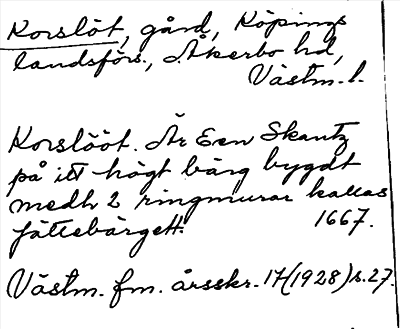 Korslöt, gård, Köpings
landsförs., Åkerbo hd,
Västm. l.
Korslööt. Är Een Skantz
på itt högt bärg bygdt
medh 2 ringmurar kallas
jättebärgett. 1667.
Västm. fm. årsskr. 17 (1928) s. 27.